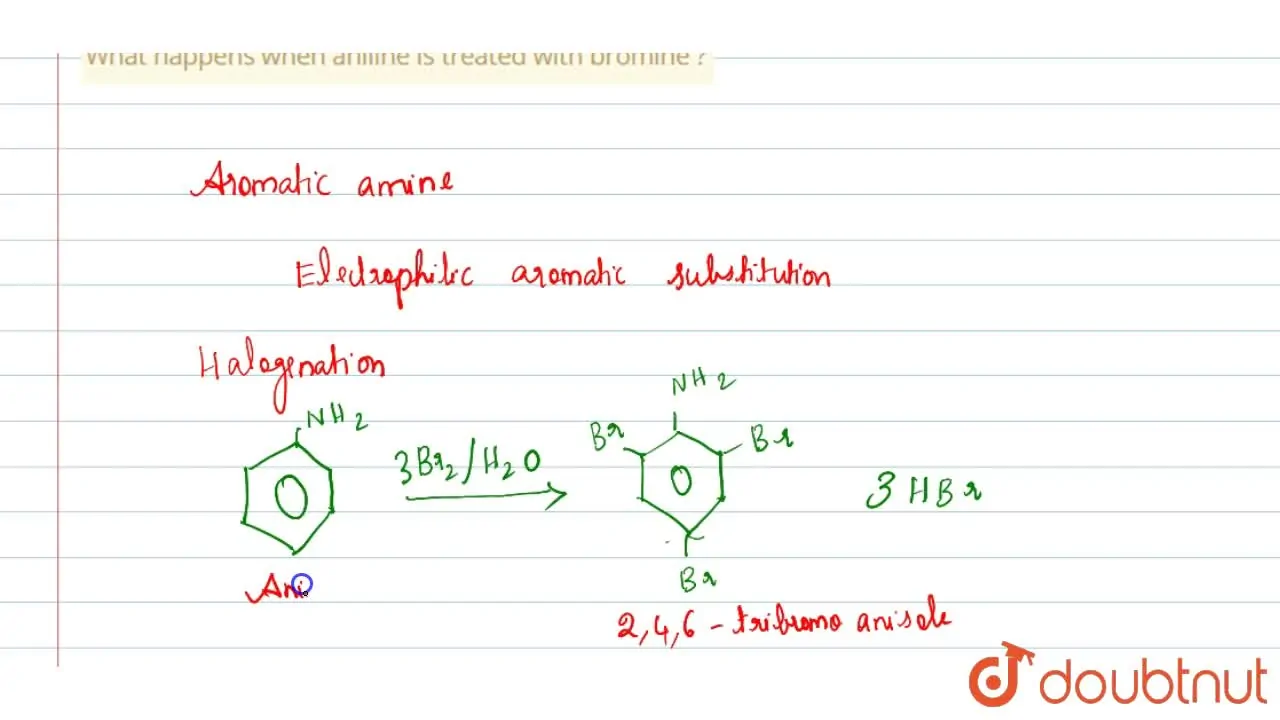 What happens when aniline is treated with bromine ?
Aromatic amine
Electrophilic aromatic substitution
Halogenation
NH2
3Br2/H2O
Ani
NH2
Br
Br
Br
3 HBr
2,4,6 - tribromo anisole
doubtnut